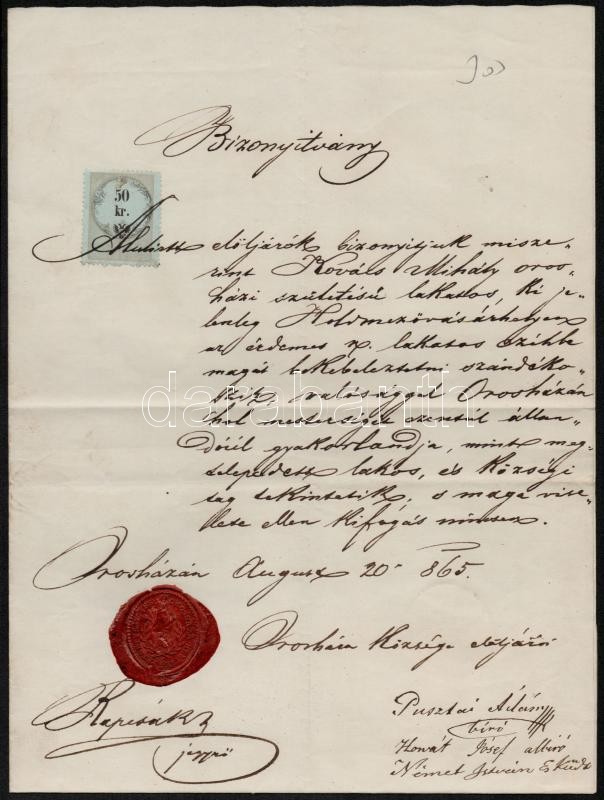 Bizonyitvány
50
kr.
Alulirtt előljárók bizonyitjuk misze-
rint Kovács Mihály oros-
házi születésű lakatos, ki je-
lenleg Holdmezővásárhelyen
az érdemes n. lakatos czéhbe
magát bekébeleztetni szándéko-
zik, valósággal Orosházán
hol mesterségét szentúl állan-
dóúl gyakorlandja, mint meg-
telepedett lakos, és községi
tag tekintetik, s maga vise-
lete ellen kifogás nincsen.
Orosházán August 20 865.
Orosháza Községe előljárói
Rapcsák
jegyző
Pusztai Ádám
biró
Horvát József albiró
Német István Esküdt
darabanth